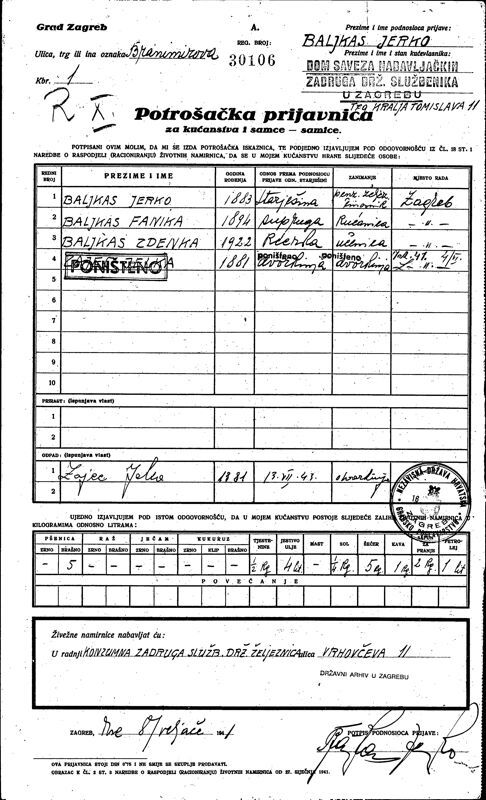 Grad Zagreb
A.
Prezime i ime podnosioca prijave:
Ulica, trg ili ina oznaka: Branimirova
REG. BROJ:
30106
BALJKAS JERKO
Prezime i ime i stan kućevlasnika:
Kbr. 1
DOM SAVEZA NABAVLJAČKIH
ZADRUGA DRŽ. SLUŽBENIKA
U ZAGREBU
Trg KRALJA TOMISLAVA 11
R X.
Potrošačka prijavnica
za kućanstva i samce — samice.
POTPISANI OVIM MOLIM, DA MI SE IZDA POTROŠAČKA ISKAZNICA, TE PODJEDNO IZJAVLJUJEM POD ODGOVORNOŠĆU IZ ČL. 18 ST. 1
NAREDBE O RASPODJELI (RACIONIRANJU) ŽIVOTNIH NAMIRNICA, DA SE U MOJEM KUĆANSTVU HRANE SLIJEDEĆE OSOBE:
REDNI BROJ PREZIME I IME GODINA ROĐENJA ODNOS PREMA PODNOSIOCU PRIJAVE ODN. STARJEŠINI ZANIMANJE MJESTO RADA
1 BALJKAS JERKO 1883 starješina penz. želj. činovnik Zagreb
2 BALJKAS FANIKA 1894 supruga Kućanica - " -
3 BALJKAS ZDENKA 1922 Kćerka učenica - " -
4 1881 poništeno dvorkinja poništeno dvorkinja
PONIŠTENO
5
6
7
8
9
10
PRIRAST: (ispunjava vlast)
1
2
OTPAD: (ispunjava vlast)
1 Zajec 1881 13.VII.43.
2
NEZAVISNA DRŽAVA HRVATSKA
ZAGREB
UJEDNO IZJAVLJUJEM POD ISTOM ODGOVORNOŠĆU, DA U MOJEM KUĆANSTVU POSTOJE SLIJEDEĆE ZALIHE NAMIRNICA U
KILOGRAMIMA ODNOSNO LITRAMA:
PŠENICA RAŽ JEČAM KUKURUZ TJESTENINE JESTIVO ULJE MAST SOL ŠEĆER KAVA ZA PRANJE PETROLEJ
ZRNO BRAŠNO ZRNO BRAŠNO ZRNO BRAŠNO ZRNO KLIP BRAŠNO
- 5 - - - - - - - 1/2 kg 4 lit - 1/4 kg 5 kg 1 kg 2 kg 1 lit
POVEĆANJE
Živežne namirnice nabavljat ću:
U radnji KONZUMNA ZADRUGA SLUŽB. DRŽ. ŽELJEZNICA ulica VRHOVČEVA 11
DRŽAVNI ARHIV U ZAGREBU
ZAGREB, dne 8/veljače 194
POTPIS PODNOSIOCA PRIJAVE:
OVA PRIJAVNICA STOJI DIN 0'75 I NE SMIJE SE SKUPLJE PRODAVATI.
OBRAZAC K ČL. 2 ST. 3 NAREDBE O RASPODJELI (RACIONIRANJU) ŽIVOTNIH NAMIRNICA OD 27. SIJEČNJA 1941.